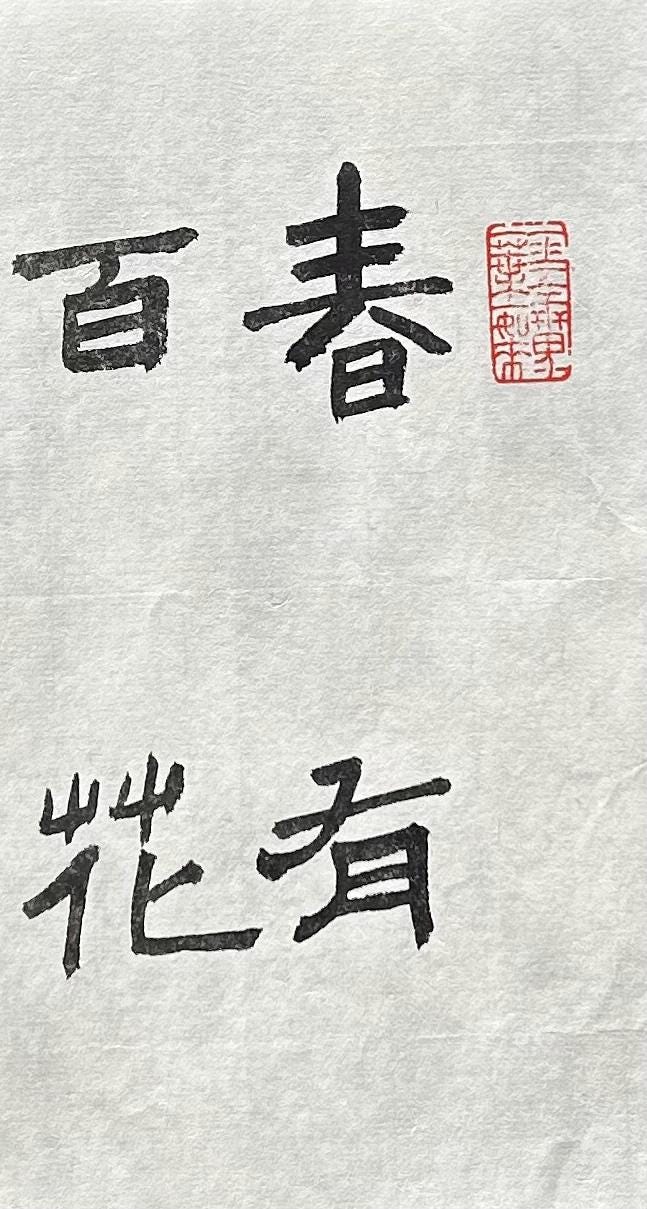 春有
百花